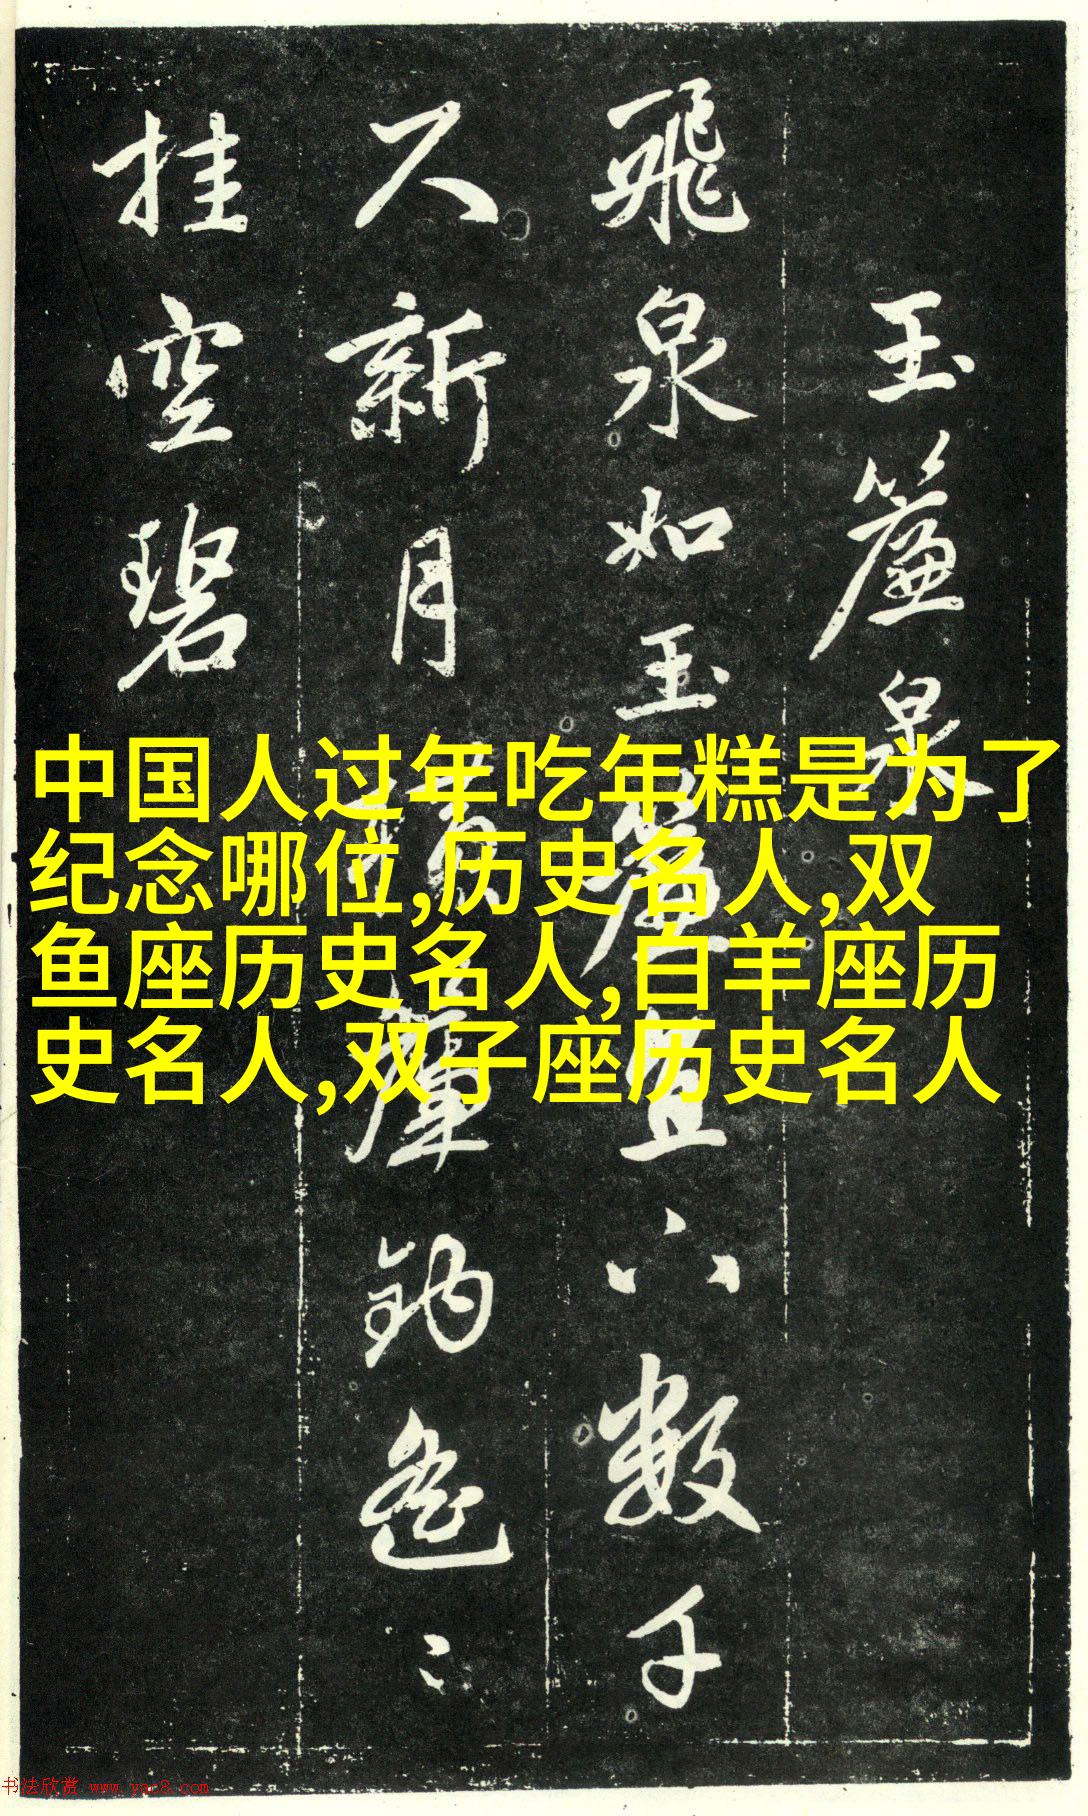 玉簾泉
飛泉如玉簾直下數千
尺新月橫簾鈎遙〻
挂空碧
中国人过年吃年糕是为了
纪念哪位,历史名人,双
鱼座历史名人,白羊座历
史名人,双子座历史名人
书法欣赏 www.yac8.com